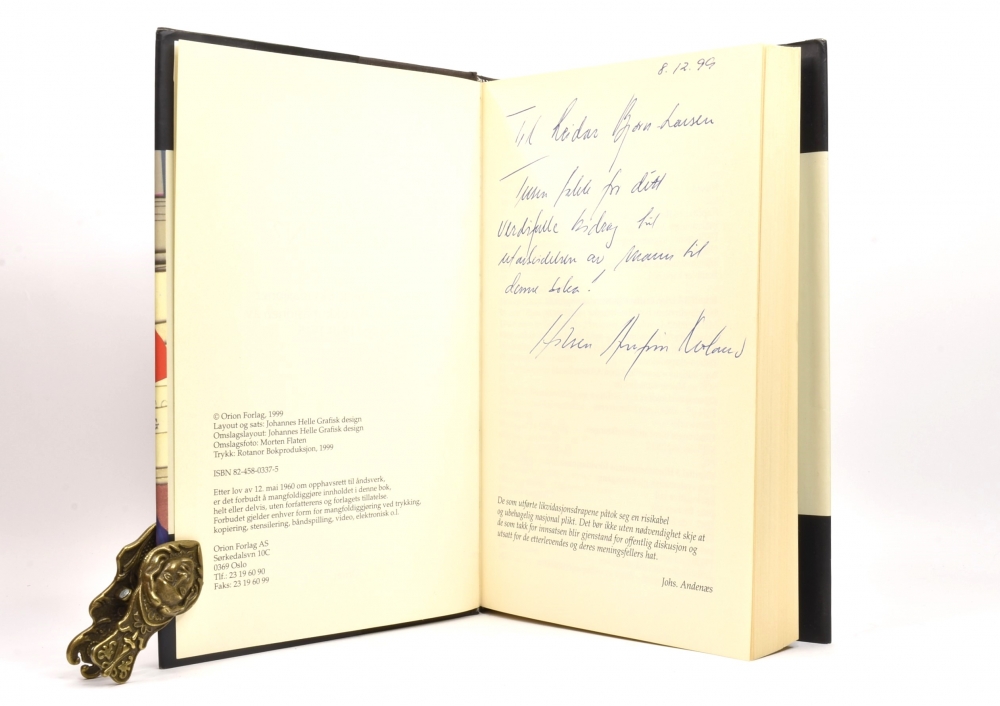 © Orion Forlag, 1999
Layout og sats: Johannes Helle Grafisk design
Omslagslayout: Johannes Helle Grafisk design
Omslagsfoto: Morten Flaten
Trykk: Rotanor Bokproduksjon, 1999
ISBN 82-458-0337-5
Etter lov av 12. mai 1960 om opphavsrett til åndsverk,
er det forbudt å mangfoldiggjøre innholdet i denne bok,
helt eller delvis, uten forfatterens og forlagets tillatelse.
Forbudet gjelder enhver form for mangfoldiggjøring ved trykking,
kopiering, stensilering, båndspilling, video, elektronisk o.l.
Orion Forlag AS
Sørkedalsvn 10C
0369 Oslo
Tlf.: 23 19 60 90
Faks: 23 19 60 99
8.12.99
Til Reidar Bjørn Larsen
Tusen takk for ditt
verdifulle bidrag til
utarbeidelsen av manus til
denne boka!
Hilsen Arnfinn
De som utførte likvidasjonsdrapene påtok seg en risikabel
og ubehagelig nasjonal plikt. Det bør ikke uten nødvendighet skje at
de som takk for innsatsen blir gjenstand for offentlig diskusjon og
utsatt for de etterlevendes og deres meningsfellers hat.
Johs. Andenæs